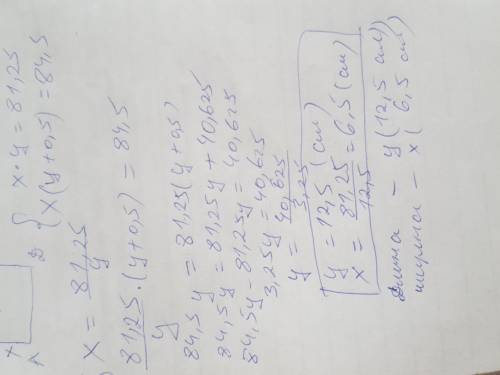 x
A
D { x·y = 81,25
x(y+0,5) = 84,5
x = 81,25/y
81,25/y · (y+0,5) = 84,5
84,5y = 81,25(y+0,5)
84,5y = 81,25y + 40,625
84,5y - 81,25y = 40,625
3,25y = 40,625
y = 40,625/3,25
y = 12,5 (см)
x = 81,25/12,5 = 6,5 (см)
Длина - y (12,5 см)
ширина - x (6,5 см)